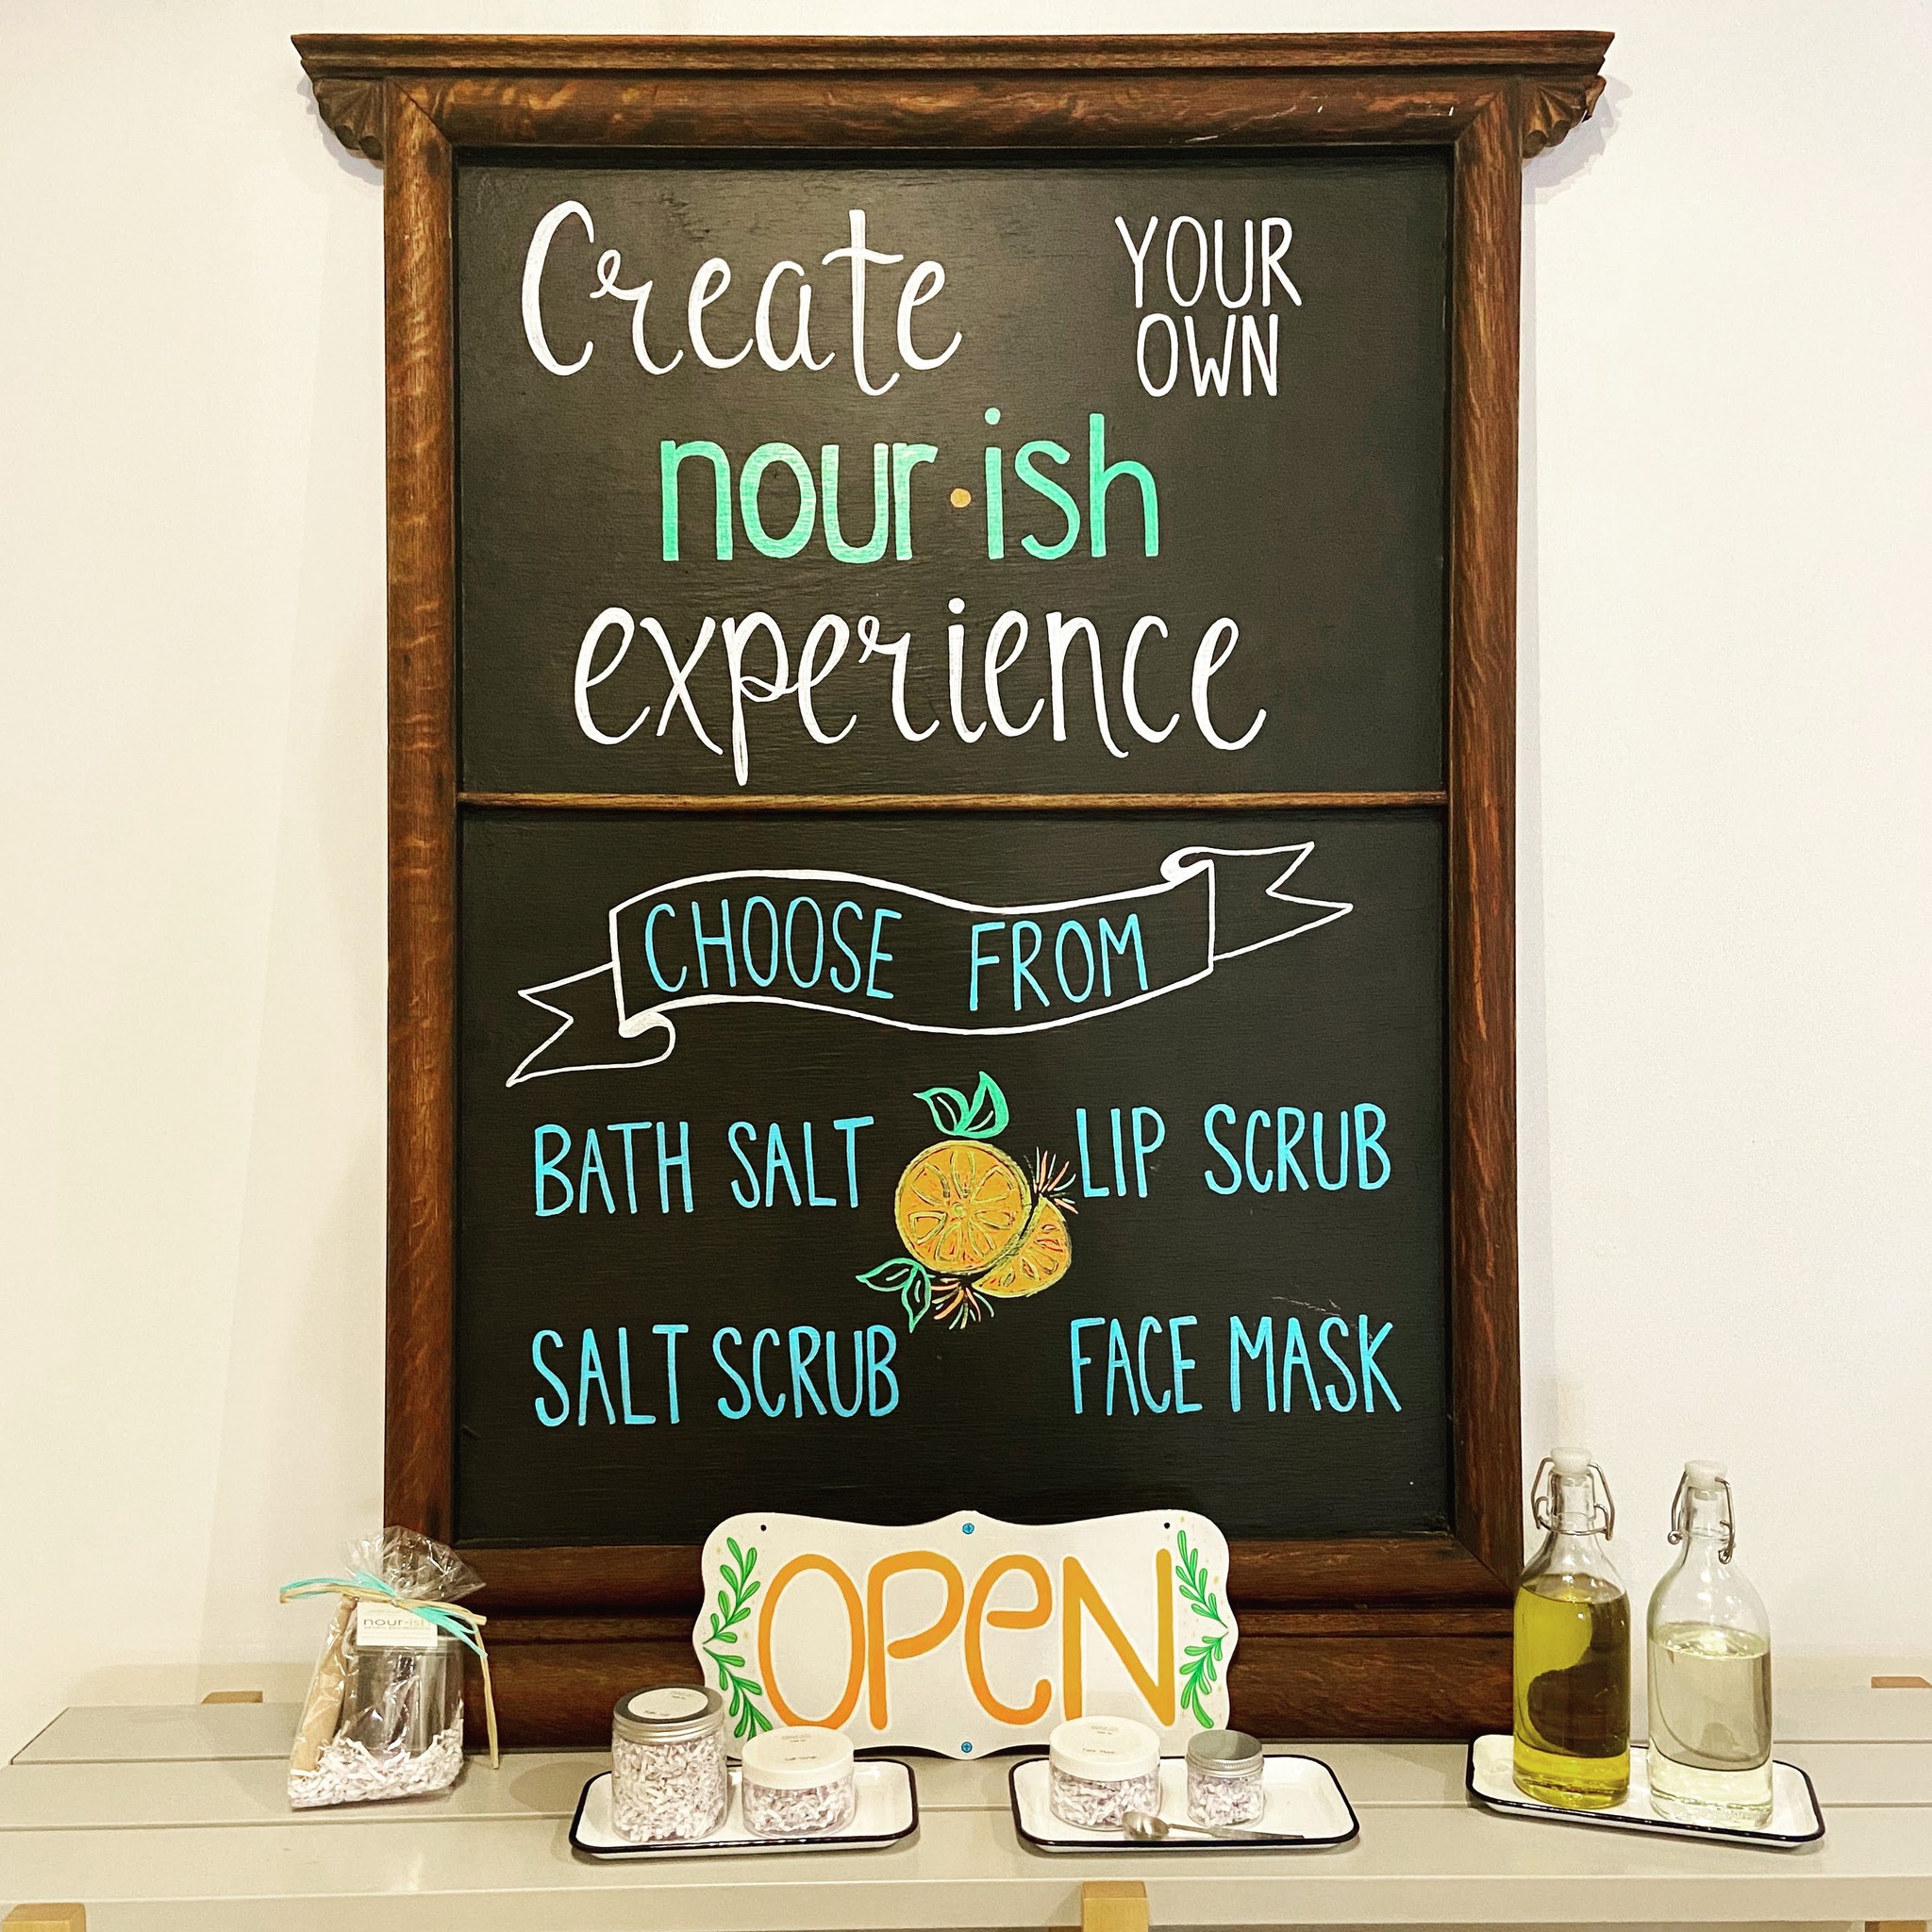 Create YOUR
OWN
nour·ish
experience
CHOOSE FROM
BATH SALT
LIP SCRUB
SALT SCRUB
FACE MASK
OPEN
nour·ish
Salt Scrub
Face Mask